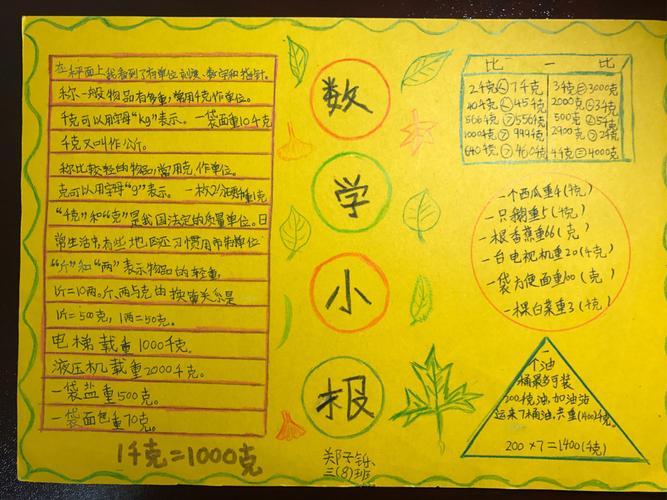 在秤面上我看到了有单位刻度、数字和指针。
称一般物品有多重,常用千克作单位。
千克可以用字母"kg"表示。一袋面重10千克
千克又叫作公斤。
称比较轻的物品,常用克作单位。
克可以用字母"g"表示。一枚2分硬币重1克
"千克"和"克"是我国法定的质量单位。日
常生活中有些地区还习惯用市制单位
"斤"和"两"表示物品的轻重,
1斤=10两。斤、两与克的换算关系是
1斤=500克,1两=50克。
电梯载重1000千克。
液压机载重2000千克。
一袋盐重500克。
一袋面包重70克。
1千克=1000克
数
学
小
报
郑子铄
三(8)班
比一比
2千克<7千克 3千克=3000克
404克<454克 2000克<3千克
566千克>556千克 500克<5千克
1000千克>999千克 2900克>2千克
640千克>460千克 4千克=4000克
一个西瓜重4(千克)
一只鹅重5(千克)
一根香蕉重66(克)
一台电视机重20(千克)
一袋方便面重100(克)
一棵白菜重3(千克)
一
个油
桶最多可装
200千克油,加油站
运来了7桶油,共重(1400)千克。
200×7=1400(千克)